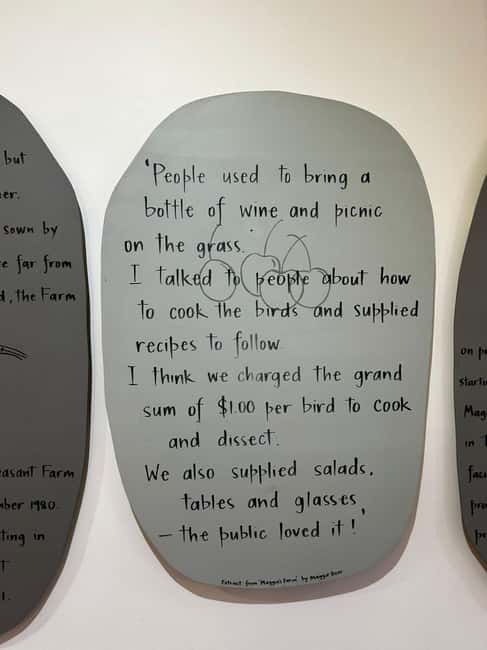 but
er.
sown by
e far from
d, the Farm
easant Farm
mber 1980.
ting in
'People used to bring a
bottle of wine and picnic
on the grass.
I talked to people about how
to cook the birds and supplied
recipes to follow.
I think we charged the grand
sum of $1.00 per bird to cook
and dissect.
We also supplied salads,
tables and glasses
– the public loved it!'
Extract from 'Maggie's Farm' by Maggie Beer
on p
starti
Mag
in T
faci
pro